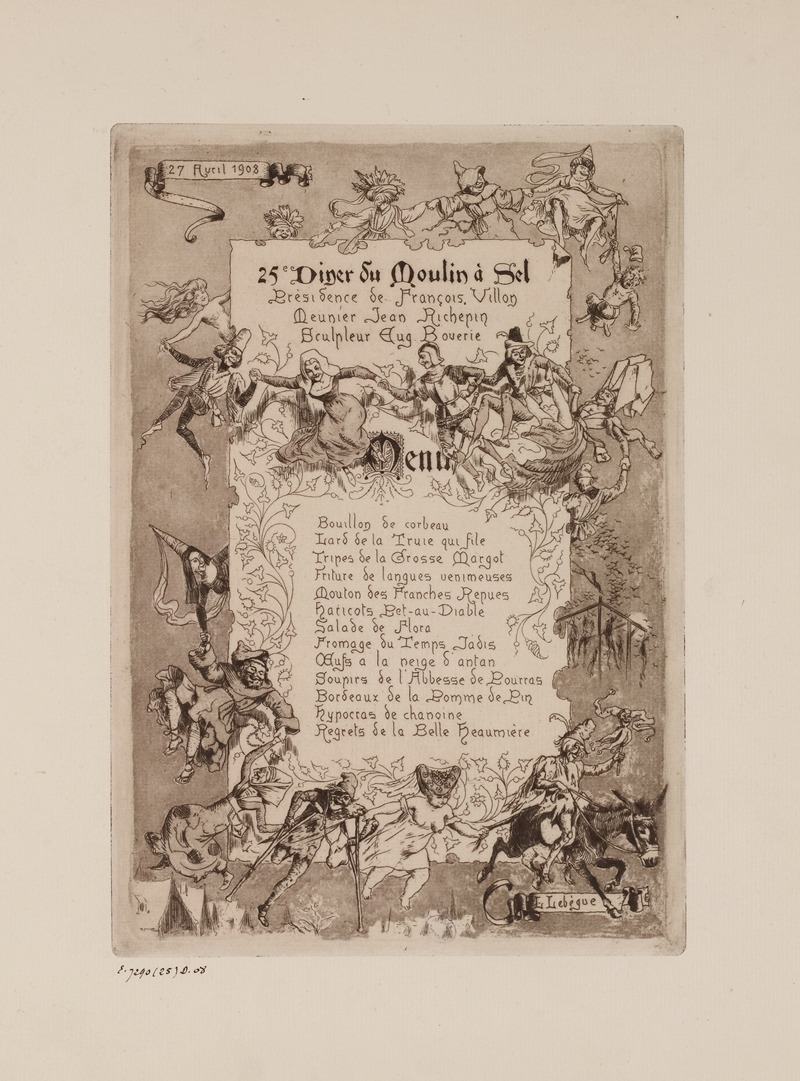 27 Avril 1908
25e Diner du Moulin à Sel
Présidence de François Villon
Meunier Jean Richepin
Sculpteur Eug. Boverie
Menu
Bouillon de corbeau
Lard de la Truie qui file
Tripes de la Grosse Margot
Friture de langues venimeuses
Mouton des Franches Repues
Haricots Pet-au-Diable
Salade de Flora
Fromage du Temps Jadis
Œufs a la neige d'antan
Soupirs de l'Abbesse de Pourras
Bordeaux de la Pomme de Pin
Hypocras de chanoine
Regrets de la Belle Heaumière
L Lebègue
E.7290(25)D.08